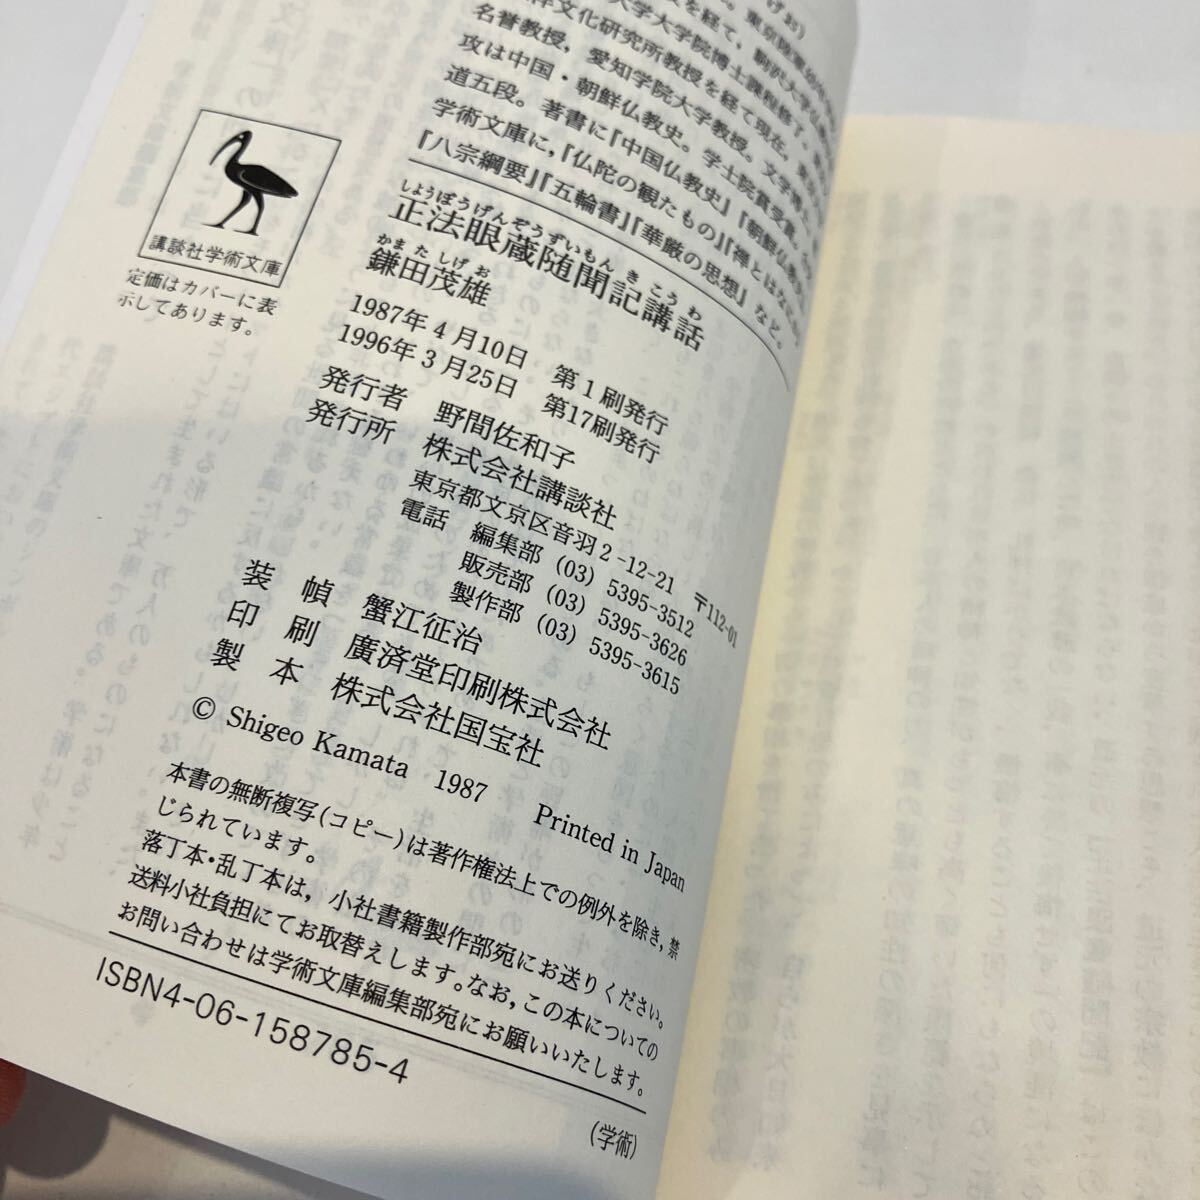 名誉教授，愛知学院大学教授。文学博士。
攻は中国・朝鮮仏教史。学士院賞受賞。
道五段。著書に『中国仏教史』『朝鮮仏教
学術文庫に，『仏陀の観たもの』『禅とはなにか
『八宗綱要』『五輪書』『華厳の思想』など。
しようぼうげんぞうずいもんきこうわ
正法眼蔵随聞記講話
かまたしげお
鎌田茂雄
1987年4月10日 第1刷発行
1996年3月25日 第17刷発行
発行者 野間佐和子
発行所 株式会社講談社
東京都文京区音羽2-12-21 〒112-01
電話 編集部 (03) 5395-3512
販売部 (03) 5395-3626
製作部 (03) 5395-3615
装幀 蟹江征治
印刷 廣済堂印刷株式会社
製本 株式会社国宝社
© Shigeo Kamata 1987 Printed in Japan
本書の無断複写(コピー)は著作権法上での例外を除き，禁
じられています。
落丁本・乱丁本は，小社書籍製作部宛にお送りください。
送料小社負担にてお取替えします。なお，この本についての
お問い合わせは学術文庫編集部宛にお願いいたします。
ISBN4-06-158785-4
(学術)
講談社学術文庫
定価はカバーに表
示してあります。